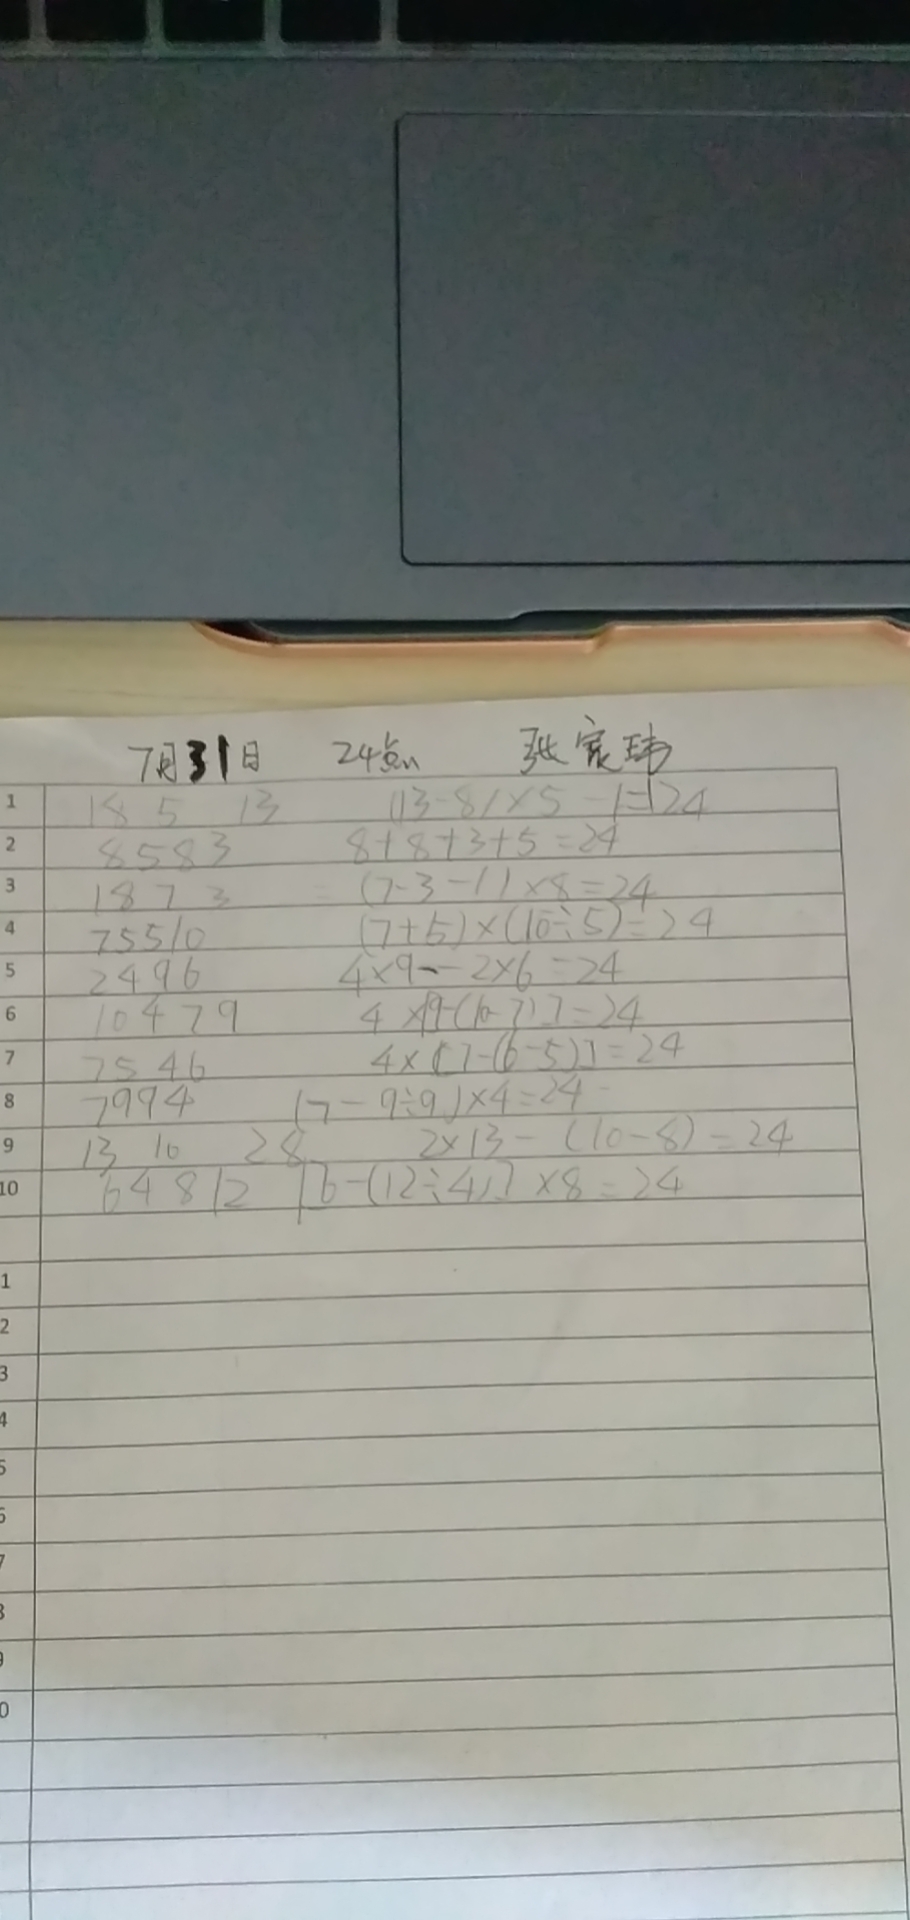 7月31日 24点 张宸玮
1 18 5 13 (13-8)×5-1=24
2 8583 8+8+3+5=24
3 187 3 = (7-3-1)×8=24
4 75510 (7+5)×(10÷5)=24
5 2496 4×9-2×6=24
6 10 4 7 9 4×[9-(10-7)]=24
7 7546 4×[7-(6-5)]=24
8 7994 (7-9÷9)×4=24
9 13 10 28 2×13-(10-8)=24
10 64 8 12 [6-(12÷4)]×8=24
1
2
3
4
5
6
7
8
9
0